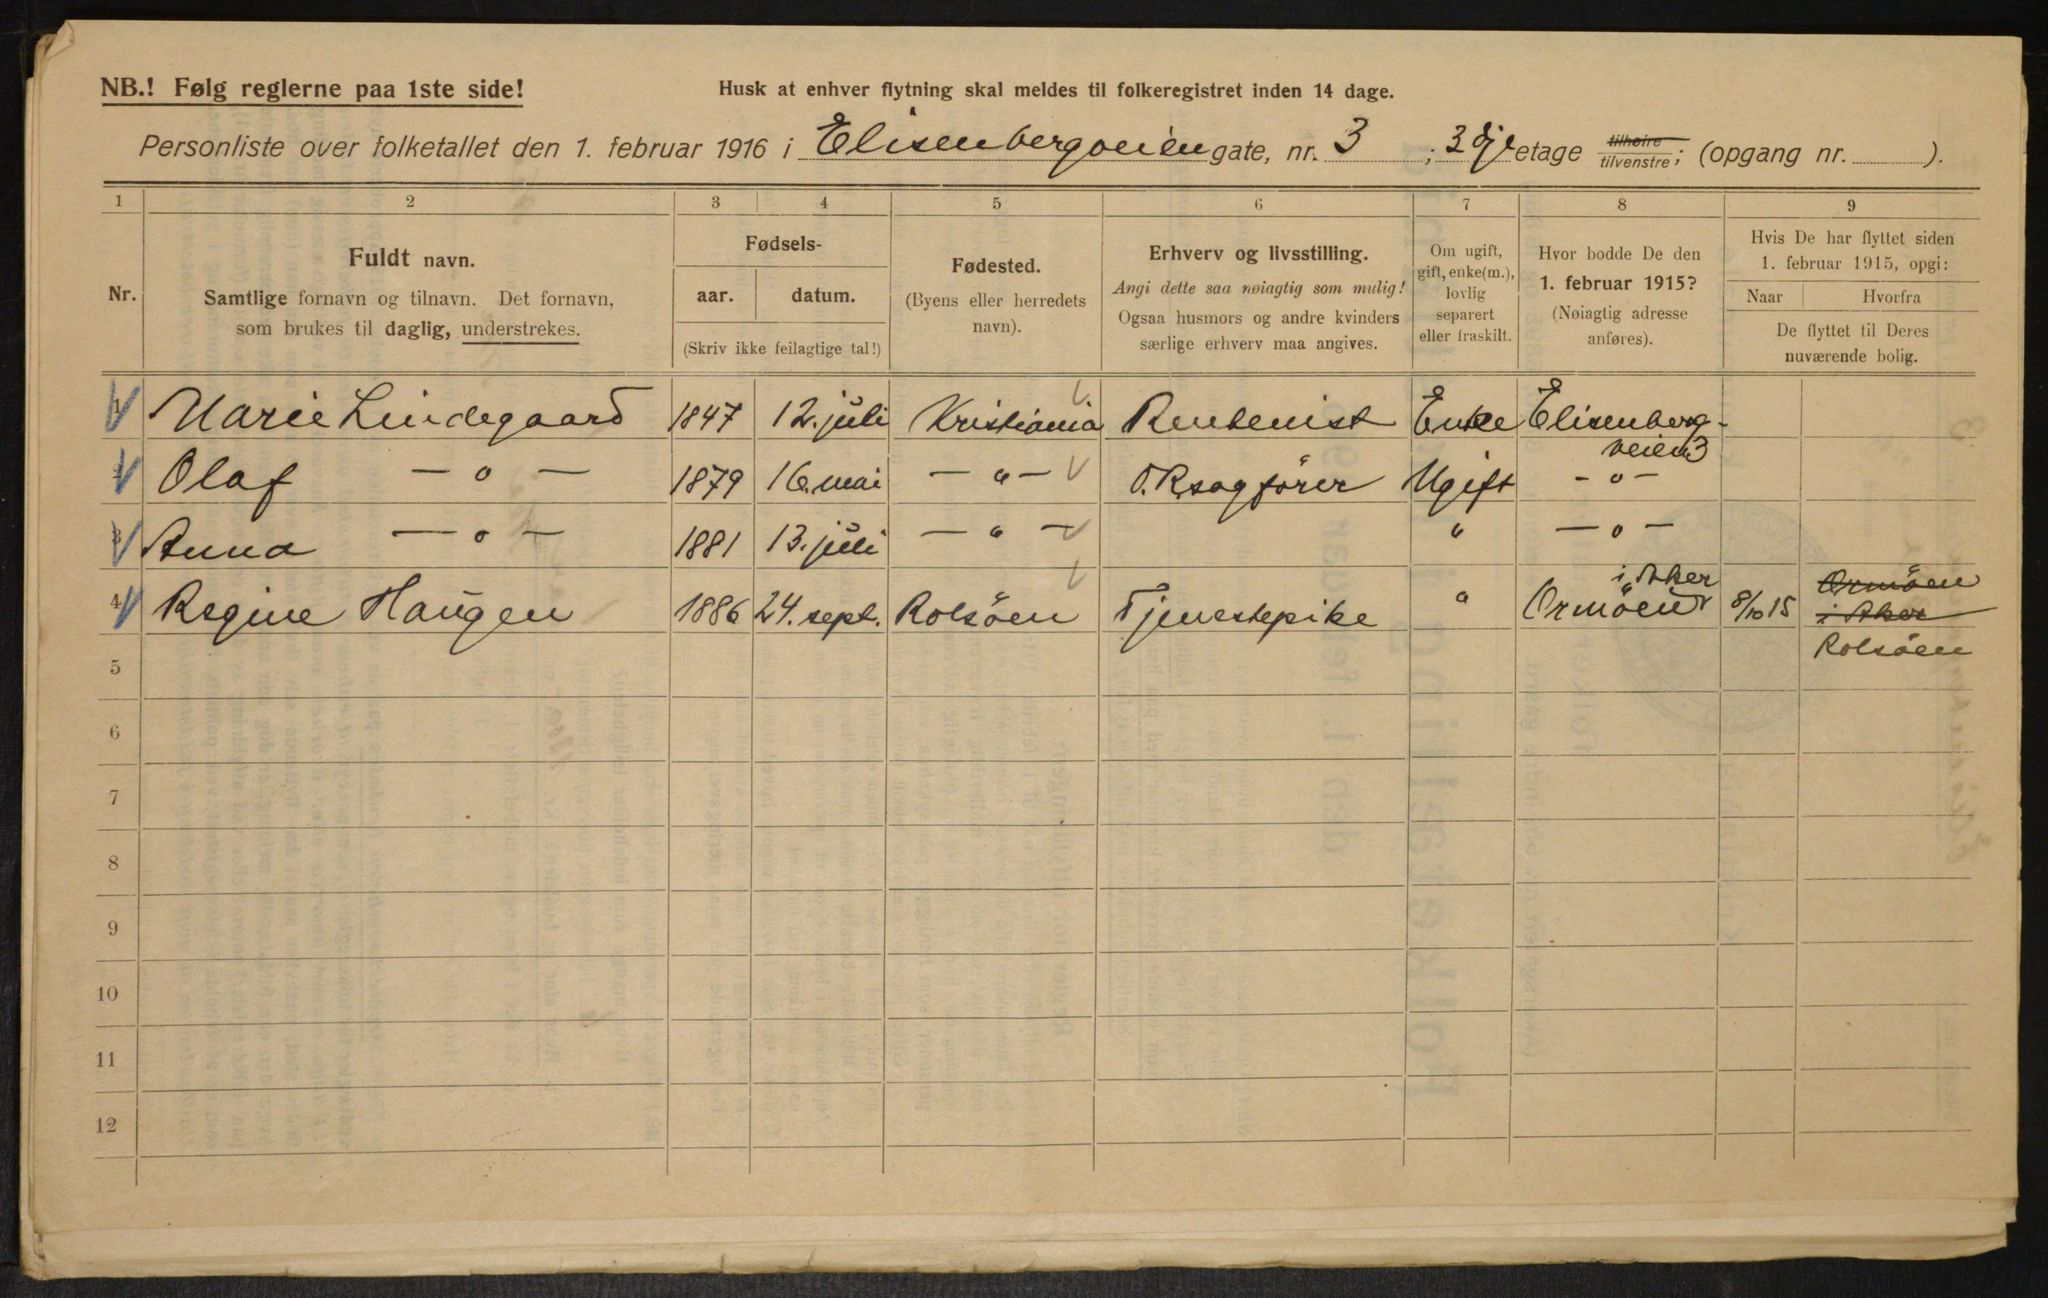 NB.! Følg reglerne paa 1ste side!
Husk at enhver flytning skal meldes til folkeregistret inden 14 dage.
Personliste over folketallet den 1. februar 1916 i Elisenbergveien gate, nr. 3 ; 3dje etage tilhøire tilvenstre; (opgang nr. ).
1 2 3 4 5 6 7 8 9
Nr.
Fuldt navn.
Samtlige fornavn og tilnavn. Det fornavn,
som brukes til daglig, understrekes.
Fødsels-
aar. datum.
(Skriv ikke feilagtige tal!)
Fødested.
(Byens eller herredets
navn).
Erhverv og livsstilling.
Angi dette saa nøiagtig som mulig!
Ogsaa husmors og andre kvinders
særlige erhverv maa angives.
Om ugift,
gift, enke(m.),
lovlig
separert
eller fraskilt.
Hvor bodde De den
1. februar 1915?
(Nøiagtig adresse
anføres).
Hvis De har flyttet siden
1. februar 1915, opgi:
Naar Hvorfra
De flyttet til Deres
nuværende bolig.
1 Marie Lindegaard 1847 12. juli Kristiania Rentenist Enke Elisenberg-
veien 3
2 Olaf — " — 1879 16. mai — " — O.R sagfører Ugift — " —
3 Anna — " — 1881 13. juli — " — " — " —
4 Regine Haugen 1886 24. sept. Rolsöen Tjenestepike " Ormöen i Aker 8/10 15 Ormöen
i Aker
Rolsöen
5
6
7
8
9
10
11
12